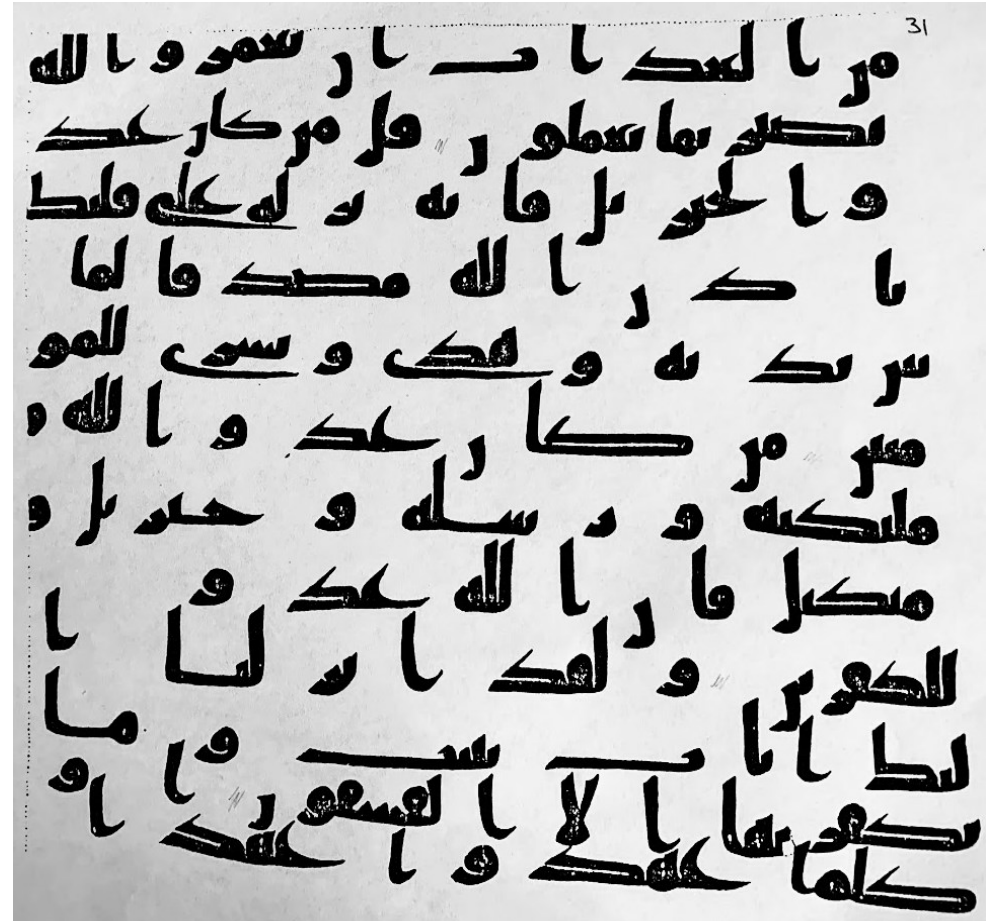 31
من العذاب ان يعمر والله
بصير بما يعملون قل من كان عد
وا لجبريل فانه نزله على قلبك
باذن الله مصدقا لما
بين يديه وهدى وبشرى للمو
منين من كان عدوا لله و
ملئكته ورسله وجبريل و
ميكيل فان الله عدو
للكفرين ولقد انزلنا ا
ليك ايات بينت وما
يكفر بها الا الفسقون او
كلما عهدوا عهد